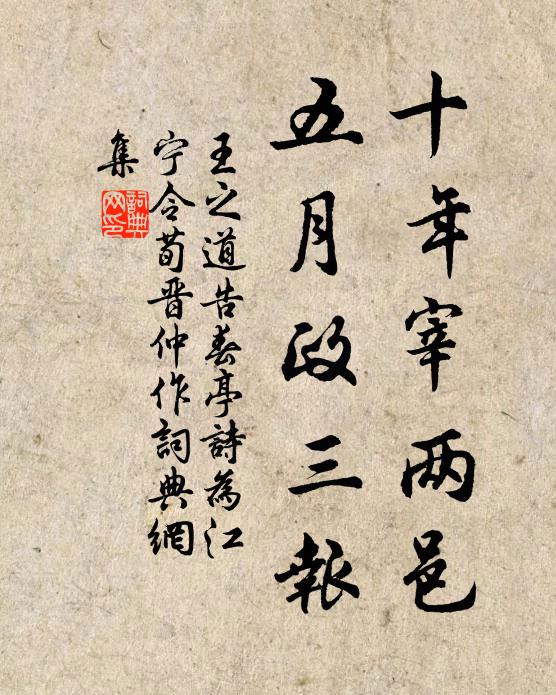 十年宰两邑
五月政三報
王之道告春亭詩為江
宁令荀晋仲作詞典網
集
詞典
网印